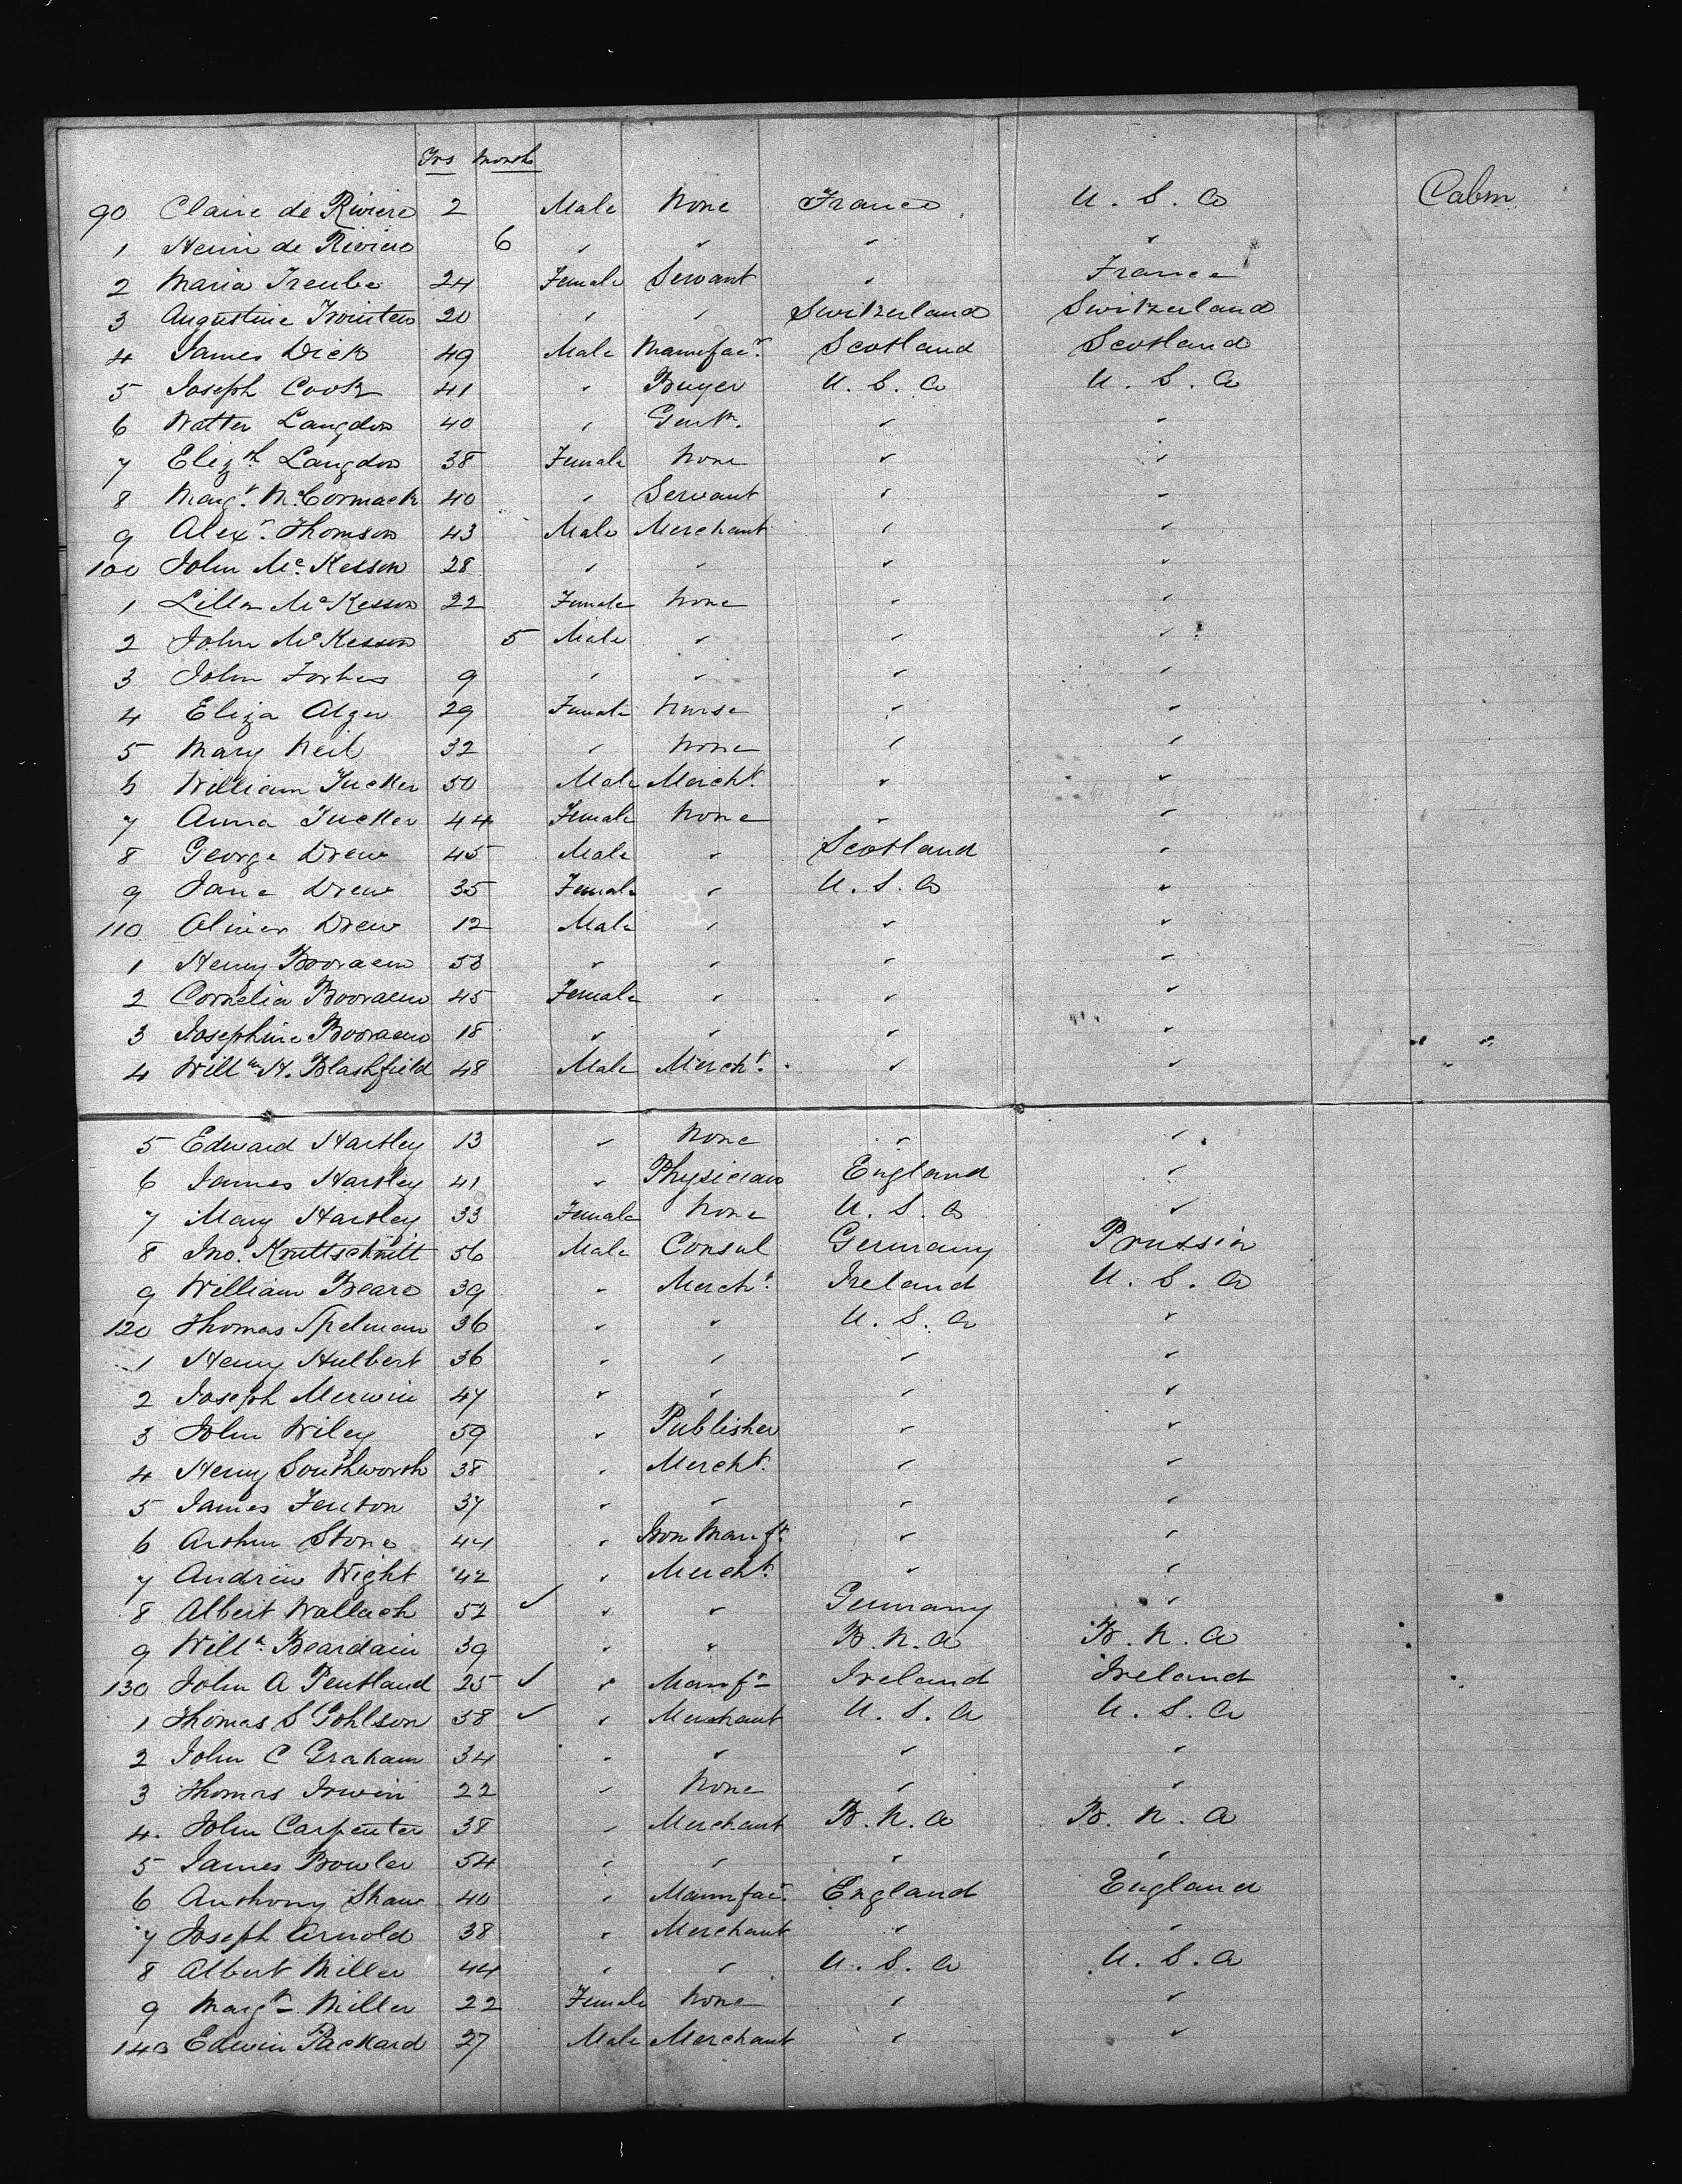 Yrs Month
90 Claire de Riviere 2 Male None France U. S. A Cabin
1 Henri de Riviere 6 " " " "
2 Maria Treube 24 Female Servant " France
3 Augustine 20 " " Switzerland Switzerland
4 James Dick 49 Male Manufacr. Scotland Scotland
5 Joseph Cook 41 " Buyer U. S. A U. S. A
6 Walter Langdon 40 " Gentn. " "
7 Elizth Langdon 38 Female None " "
8 Margt. McCormack 40 " Servant " "
9 Alexr. Thomson 43 Male Merchant " "
100 John Mc Kesson 28 " " " "
1 Lilla Mc Kesson 22 Female None " "
2 John Mc Kesson 5 Male " " "
3 John Forbes 9 " " " "
4 Eliza Alger 29 Female Nurse " "
5 Mary Neil 32 " None " "
6 William Tucker 50 Male Mercht. " "
7 Anna Tucker 44 Female None " "
8 George Drew 45 Male " Scotland "
9 Jane Drew 35 Female " U. S. A "
110 Oliver Drew 12 Male " " "
1 Henry Booraem 53 " " " "
2 Cornelia Booraem 45 Female " " "
3 Josephine Booraem 18 " " " " " "
4 Willm H. Blashfield 48 Male Mercht. " " "
5 Edward Hartley 13 " None " "
6 James Hartley 41 " Physician England "
7 Mary Hartley 33 Female None U. S. A "
8 Jno. Kruttschnitt 56 Male Consul Germany Prussia
9 William Beard 39 " Mercht. Ireland U. S. A
120 Thomas Spelman 36 " " U. S. A "
1 Henry Hulbert 36 " " " "
2 Joseph Merwin 47 " " " "
3 John Wiley 59 " Publisher " "
4 Henry Southworth 38 " Mercht. " "
5 James Fenton 37 " " " "
6 Arthur Stone 44 " Iron Manft. " "
7 Andrew Wight 42 " Mercht. " "
8 Albert Wallach 52 ✓ " " Germany "
9 Willm. Beardain 39 " " B. N. A B. N. A
130 John A Pentland 25 ✓ " Manfr Ireland Ireland
1 Thomas S Gohlson 38 ✓ " Merchant U. S. A U. S. A
2 John C Graham 34 " " " "
3 Thomas Irwin 22 " None " "
4. John Carpenter 38 " Merchant B. N. A B. N. A
5 James Bowler 54 " " " "
6 Anthony Shaw 40 " Manufacr. England England
7 Joseph Arnold 38 " Merchant " "
8 Albert Miller 44 " " U. S. A U. S. A
9 Margt Miller 22 Female None " "
140 Edwin Packard 27 Male Merchant " "